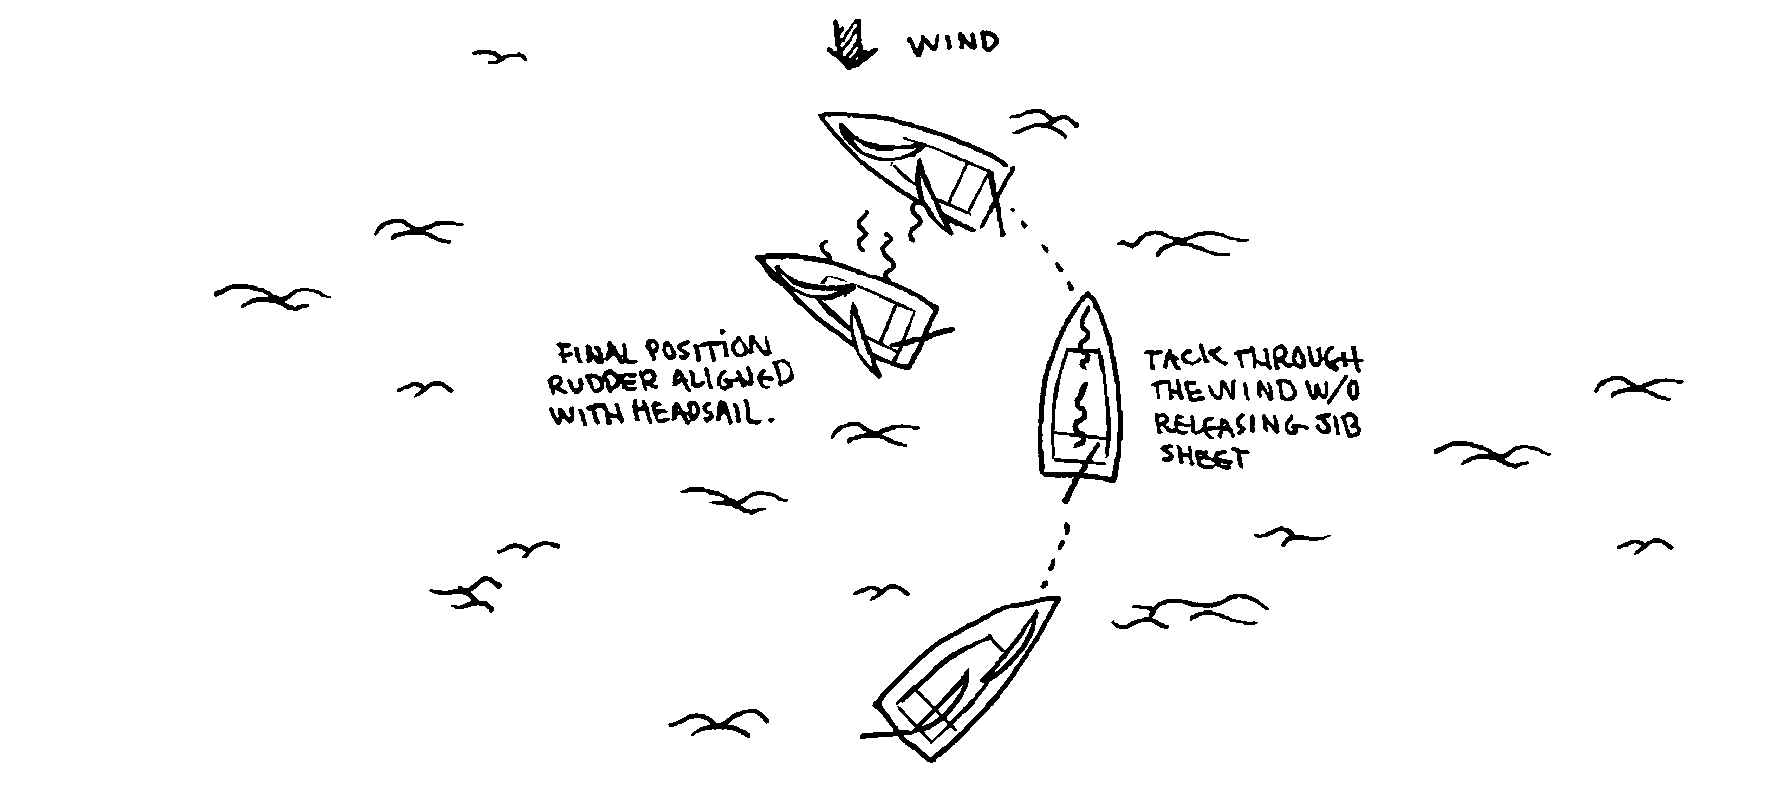 WIND
FINAL POSITION
RUDDER ALIGNED
WITH HEADSAIL.
TACK THROUGH
THE WIND W/O
RELEASING JIB
SHEET